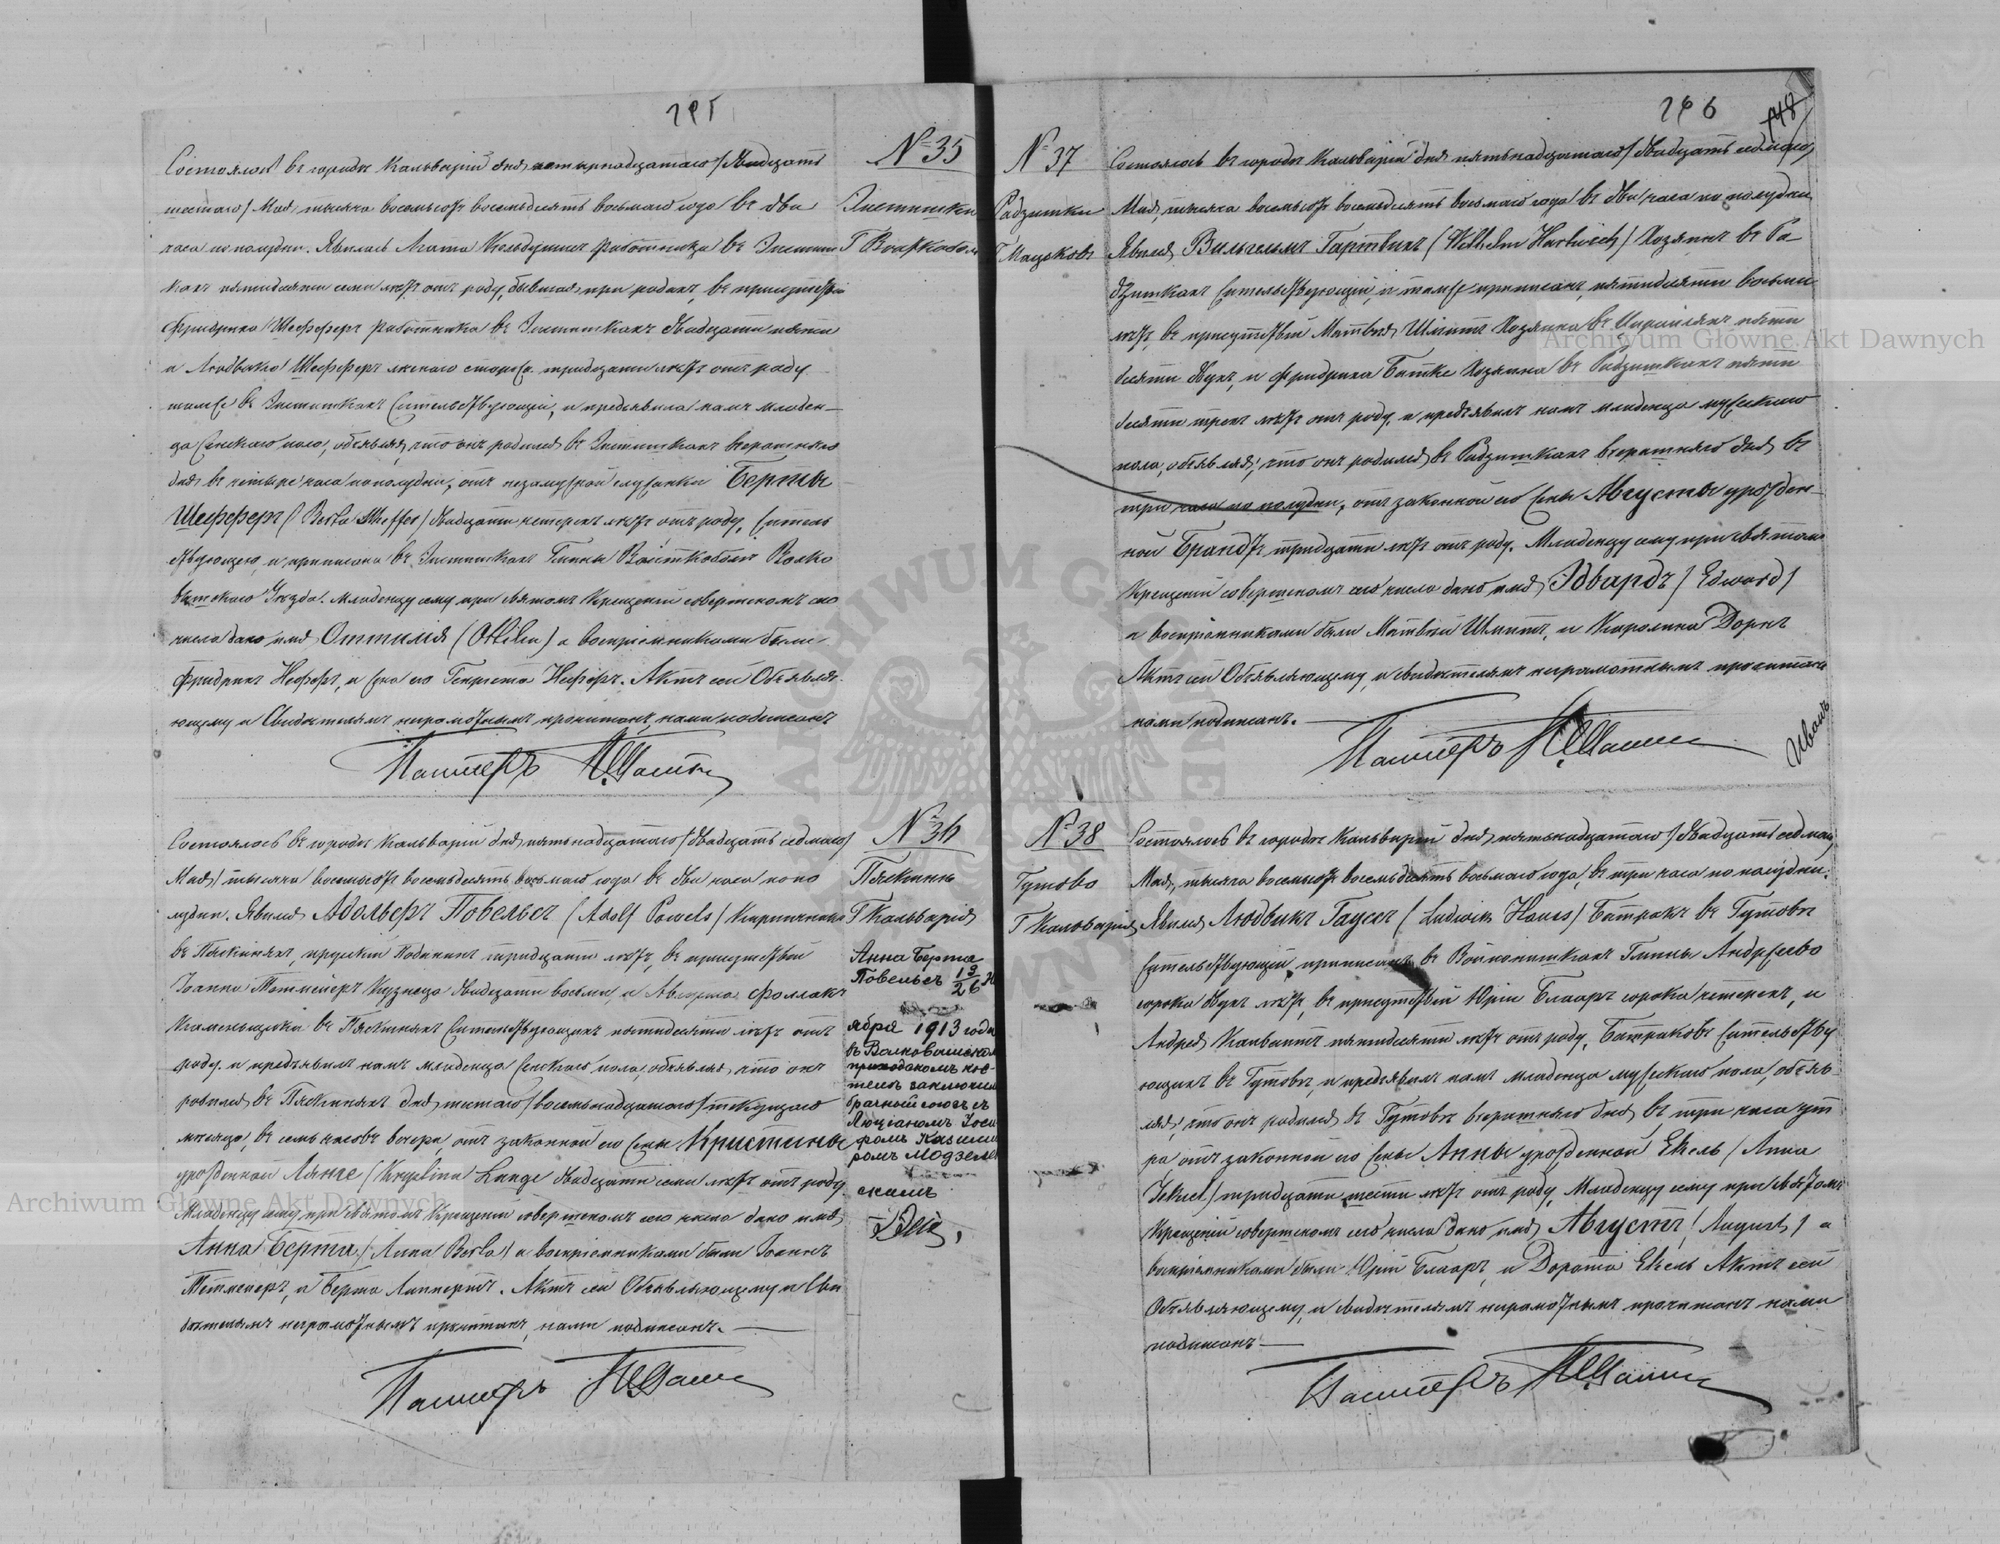 295
№ 35
Состоялось въ городѣ Кальваріи дня четырнадцатаго/двадцать
шестаго/ Мая, тысяча восемьсотъ восемьдесятъ восьмаго года въ два
часа по полудни. Явилась Агата Кельдушисъ работница въ
лѣтъ отъ роду, бывшая при родахъ, въ присутствіи
Фридриха Шефферъ работника въ двадцати пяти
и Людвика Шефферъ лѣснаго сторожа тридцати лѣтъ отъ роду
тамже въ жительствующихъ, и предъявила намъ младен-
ца женскаго пола, объявляя, что онъ родился въ вчерашняго
дня въ четыре часа пополудни, отъ незамужней служанки Берты
Шефферъ (Berta Scheffer) двадцати четырехъ лѣтъ отъ роду, житель
ствующею, и приписана въ Гмины Войткобольъ Волко
вышскаго Уѣзда. Младенцу сему при Святомъ Крещеніи совершенномъ сего
числа дано имя Оттилія (Ottilia) а воспріемниками были
Фридрихъ и жена его Генріета Актъ сей Объявля-
ющему и Свидѣтелямъ неграмотнымъ прочитанъ, нами подписанъ
Пасторъ
Г Войткоболь
№ 36
Состоялось въ городѣ Кальваріи дня пятьнадцатаго/двадцать седмаго/
Мая, тысяча восемьсотъ восемьдесятъ восьмаго года въ два часа попо
лудни. Явился Адольфъ Повельсъ (Adolf Powels)
въ прускій подданный тридцати лѣтъ, въ присутствіи
Іоанна Тетмейеръ Кузнеца двадцати восьми, и Августа Фоллакъ
Каменьщика въ жительствующихъ пятидесяти лѣтъ отъ
роду, и предъявилъ намъ младенца женскаго пола, объявляя, что онъ
родился въ дня шестаго/восемьнадцатаго/текущаго
мѣсяца, въ семь часовъ вечера, отъ законной его жены Кристины
урожденной Лянге (Krystina Lange) двадцати семи лѣтъ отъ роду
Младенцу сему при Святомъ Крещеніи совершенномъ сего числа дано имя
Анна Берта/Anna Berta/ а воспріемниками были Іоаннъ
Тетмейеръ, и Берта Актъ сей Объявляющему и Сви
дѣтелямъ неграмотнымъ прочитанъ, нами подписанъ.
Пасторъ
Г Кальварія
Анна Берта
Повельсъ 13/26 Н
ября 1913 года
въ Волковышском
приходскомъ кос-
телѣ заключила
брачный союзъ съ
Люціаномъ Іоси
фомъ Казими
ромъ Модзеле
скимъ
296
148
№ 37
Радзишки
Состоялось въ городѣ Кальваріи дня пятьнадцатаго/двадцать седмаго/
Мая, тысяча восемьсотъ восемьдесятъ восьмаго года въ два часа по полудни
Явился Вильгельмъ Гартвихъ (Wilhelm Hartwich) Хозяинъ въ Ра
дзишкахъ жительствующій, и тамже приписанъ, пятидесяти восьми
лѣтъ, въ присутствіи Матвея Шмитъ Хозяина въ пяти
десяти двухъ, и Фридриха Батке Хозяина въ Радзишкахъ пяти
десяти трехъ лѣтъ отъ роду, и предъявилъ намъ младенца мужескаго
пола, объявляя, что онъ родился въ Радзишкахъ вчерашняго дня въ
три часа по полудни, отъ законной его жены Августы урожден-
ной Брандъ тридцати лѣтъ отъ роду. Младенцу сему при святомъ
Крещеніи совершенномъ сего числа дано имя Эдвардъ/Edward/
а воспріемниками были Матвей Шмитъ, и Каролина Дорнъ
Актъ сей Объявляющему, и свидѣтелямъ неграмотнымъ прочитанъ
нами подписанъ.
Пасторъ
Иванъ
№ 38
Гутово
Г Кальварія
Состоялось въ городѣ Кальваріи дня пятьнадцатаго/двадцать седмаго/
Мая, тысяча восемьсотъ восемьдесятъ восьмаго года, въ три часа по полудни.
Явился Людвикъ Гаусъ (Ludwik Hauss) Батракъ въ Гутовѣ
жительствующій, приписанъ въ Войпонишкахъ Гмины Андржеево
сорока двухъ лѣтъ, въ присутствіи Юрія Блааръ сорока четырехъ, и
Андрея пятидесяти лѣтъ отъ роду, Батраковъ жительству
ющихъ въ Гутовѣ, и предъявилъ намъ младенца мужескаго пола, объяв-
ляя, что онъ родился въ Гутовѣ вчерашняго дня, въ три часа ут
ра отъ законной его жены Анны урожденной Екель/Anna
Jekiel/ тридцати шести лѣтъ отъ роду, Младенцу сему при святомъ
Крещеніи совершенномъ сего числа дано имя Августъ/August/ а
воспріемниками были Юрій Блааръ, и Дорота Екель Актъ сей
Объявляющему, и свидѣтелямъ неграмотнымъ прочитанъ нами
подписанъ
Пасторъ
Archiwum Główne Akt Dawnych
Archiwum Główne Akt Dawnych